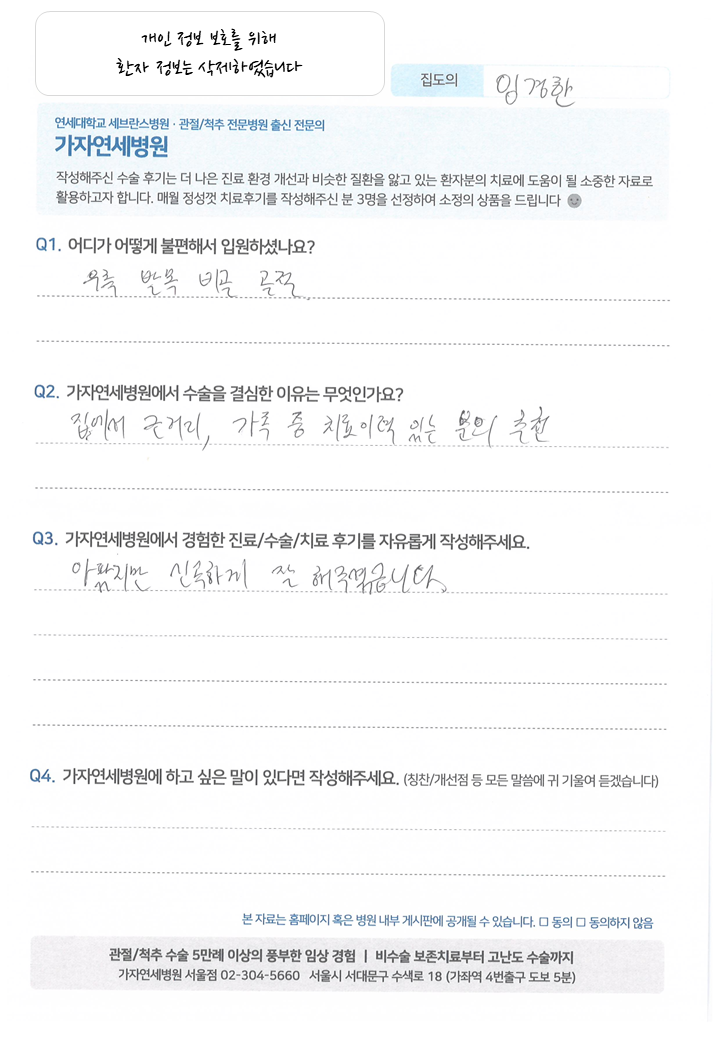 개인 정보 보호를 위해
환자 정보는 삭제하였습니다
집도의 임경환
연세대학교 세브란스병원 · 관절/척추 전문병원 출신 전문의
가자연세병원
작성해주신 수술 후기는 더 나은 진료 환경 개선과 비슷한 질환을 앓고 있는 환자분의 치료에 도움이 될 소중한 자료로
활용하고자 합니다. 매월 정성껏 치료후기를 작성해주신 분 3명을 선정하여 소정의 상품을 드립니다
Q1. 어디가 어떻게 불편해서 입원하셨나요?
우측 발목 비골 골절.
Q2. 가자연세병원에서 수술을 결심한 이유는 무엇인가요?
집에서 근거리, 가족 중 치료이력 있는 분의 추천
Q3. 가자연세병원에서 경험한 진료/수술/치료 후기를 자유롭게 작성해주세요.
아팠지만 신속하게 잘 해주셨습니다.
Q4. 가자연세병원에 하고 싶은 말이 있다면 작성해주세요. (칭찬/개선점 등 모든 말씀에 귀 기울여 듣겠습니다)
본 자료는 홈페이지 혹은 병원 내부 게시판에 공개될 수 있습니다. □ 동의 □ 동의하지 않음
관절/척추 수술 5만례 이상의 풍부한 임상 경험 | 비수술 보존치료부터 고난도 수술까지
가자연세병원 서울점 02-304-5660 서울시 서대문구 수색로 18 (가좌역 4번출구 도보 5분)